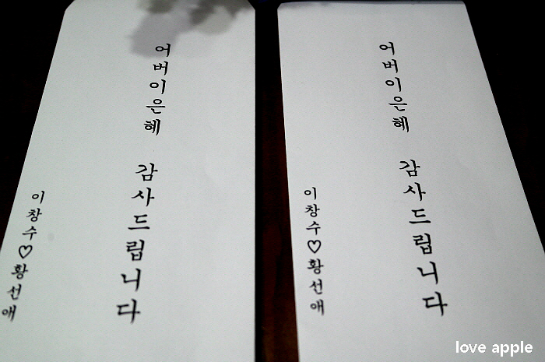 어버이은혜 감사드립니다
이창수♡황선애
어버이은혜 감사드립니다
이창수♡황선애
love apple